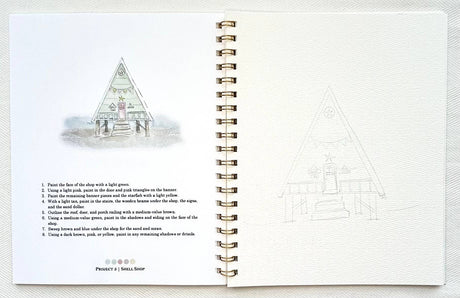 1. Paint the face of the shop with a light green.
2. Using a light pink, paint in the door and pink triangles on the banner.
3. Paint the remaining banner pieces and the starfish with a light yellow.
4. With a light tan, paint in the stairs, the wooden beams under the shop, the signs,
and the sand dollar.
5. Outline the roof, door, and porch railing with a medium-value brown.
6. Using a medium-value green, paint in the shadows and siding on the face of the
shop.
7. Sweep brown and blue under the shop for the sand and water.
8. Using a dark brown, pink, or yellow, paint in any remaining shadows or details.
Project 6 | Shell Shop